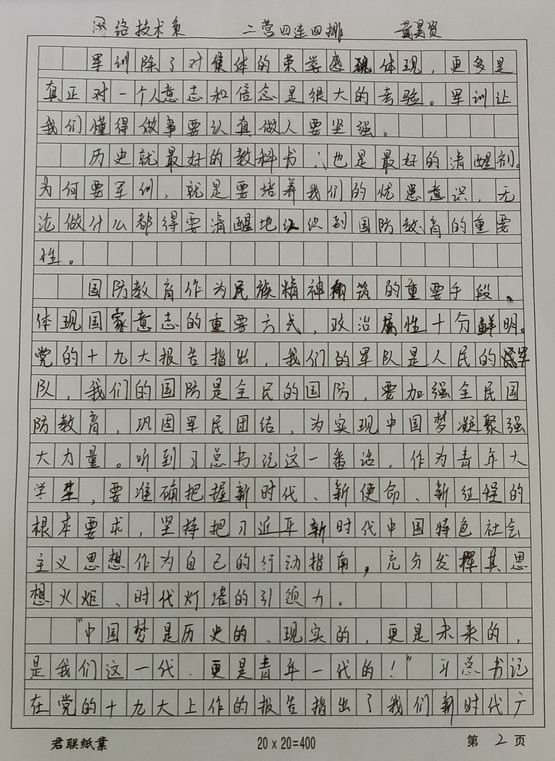 网络技术系 二营四连四排 黄昊贤
军训除了对集体的荣誉感体现，更多是
真正对一个人意志和信念是很大的考验。军训让
我们懂得做事要认真做人要坚强。
历史就最好的教科书，也是最好的清醒剂。
为何要军训，就是要培养我们的忧患意识，无
论做什么都得要清醒地认识到国防教育的重要
性。
国防教育作为民族精神构筑的重要手段、
体现国家意志的重要方式，政治属性十分鲜明。
党的十九大报告指出，我们的军队是人民的军
队，我们的国防是全民的国防，要加强全民国
防教育，巩固军民团结，为实现中国梦凝聚强
大力量。听到习总书记这一番话，作为青年大
学生，要准确把握新时代、新使命、新征程的
根本要求，坚持把习近平新时代中国特色社会
主义思想作为自己的行动指南，充分发挥其思
想火炬、时代灯塔的引领力。
"中国梦是历史的、现实的，更是未来的，
是我们这一代，更是青年一代的！"习总书记
在党的十九大上作的报告指出了我们新时代广
君联纸业 20×20=400 第 2 页